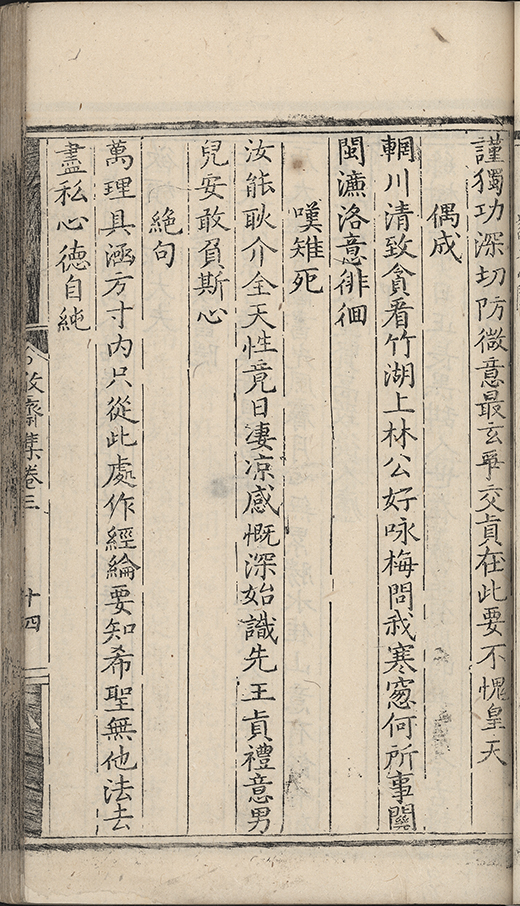 謹獨功深切防微意最玄爭交貞在此要不愧皇天
偶成
輞川清致貪看竹湖上林公好咏梅問我寒窓何所事關
閩濂洛意徘徊
嘆雉死
汝能耿介全天性竟日凄凉感慨深始識先王貞禮意男
兒安敢負斯心
絶句
萬理具涵方寸內只從此處作經綸要知希聖無他法去
盡私心德自純
牧齋集卷三
十四